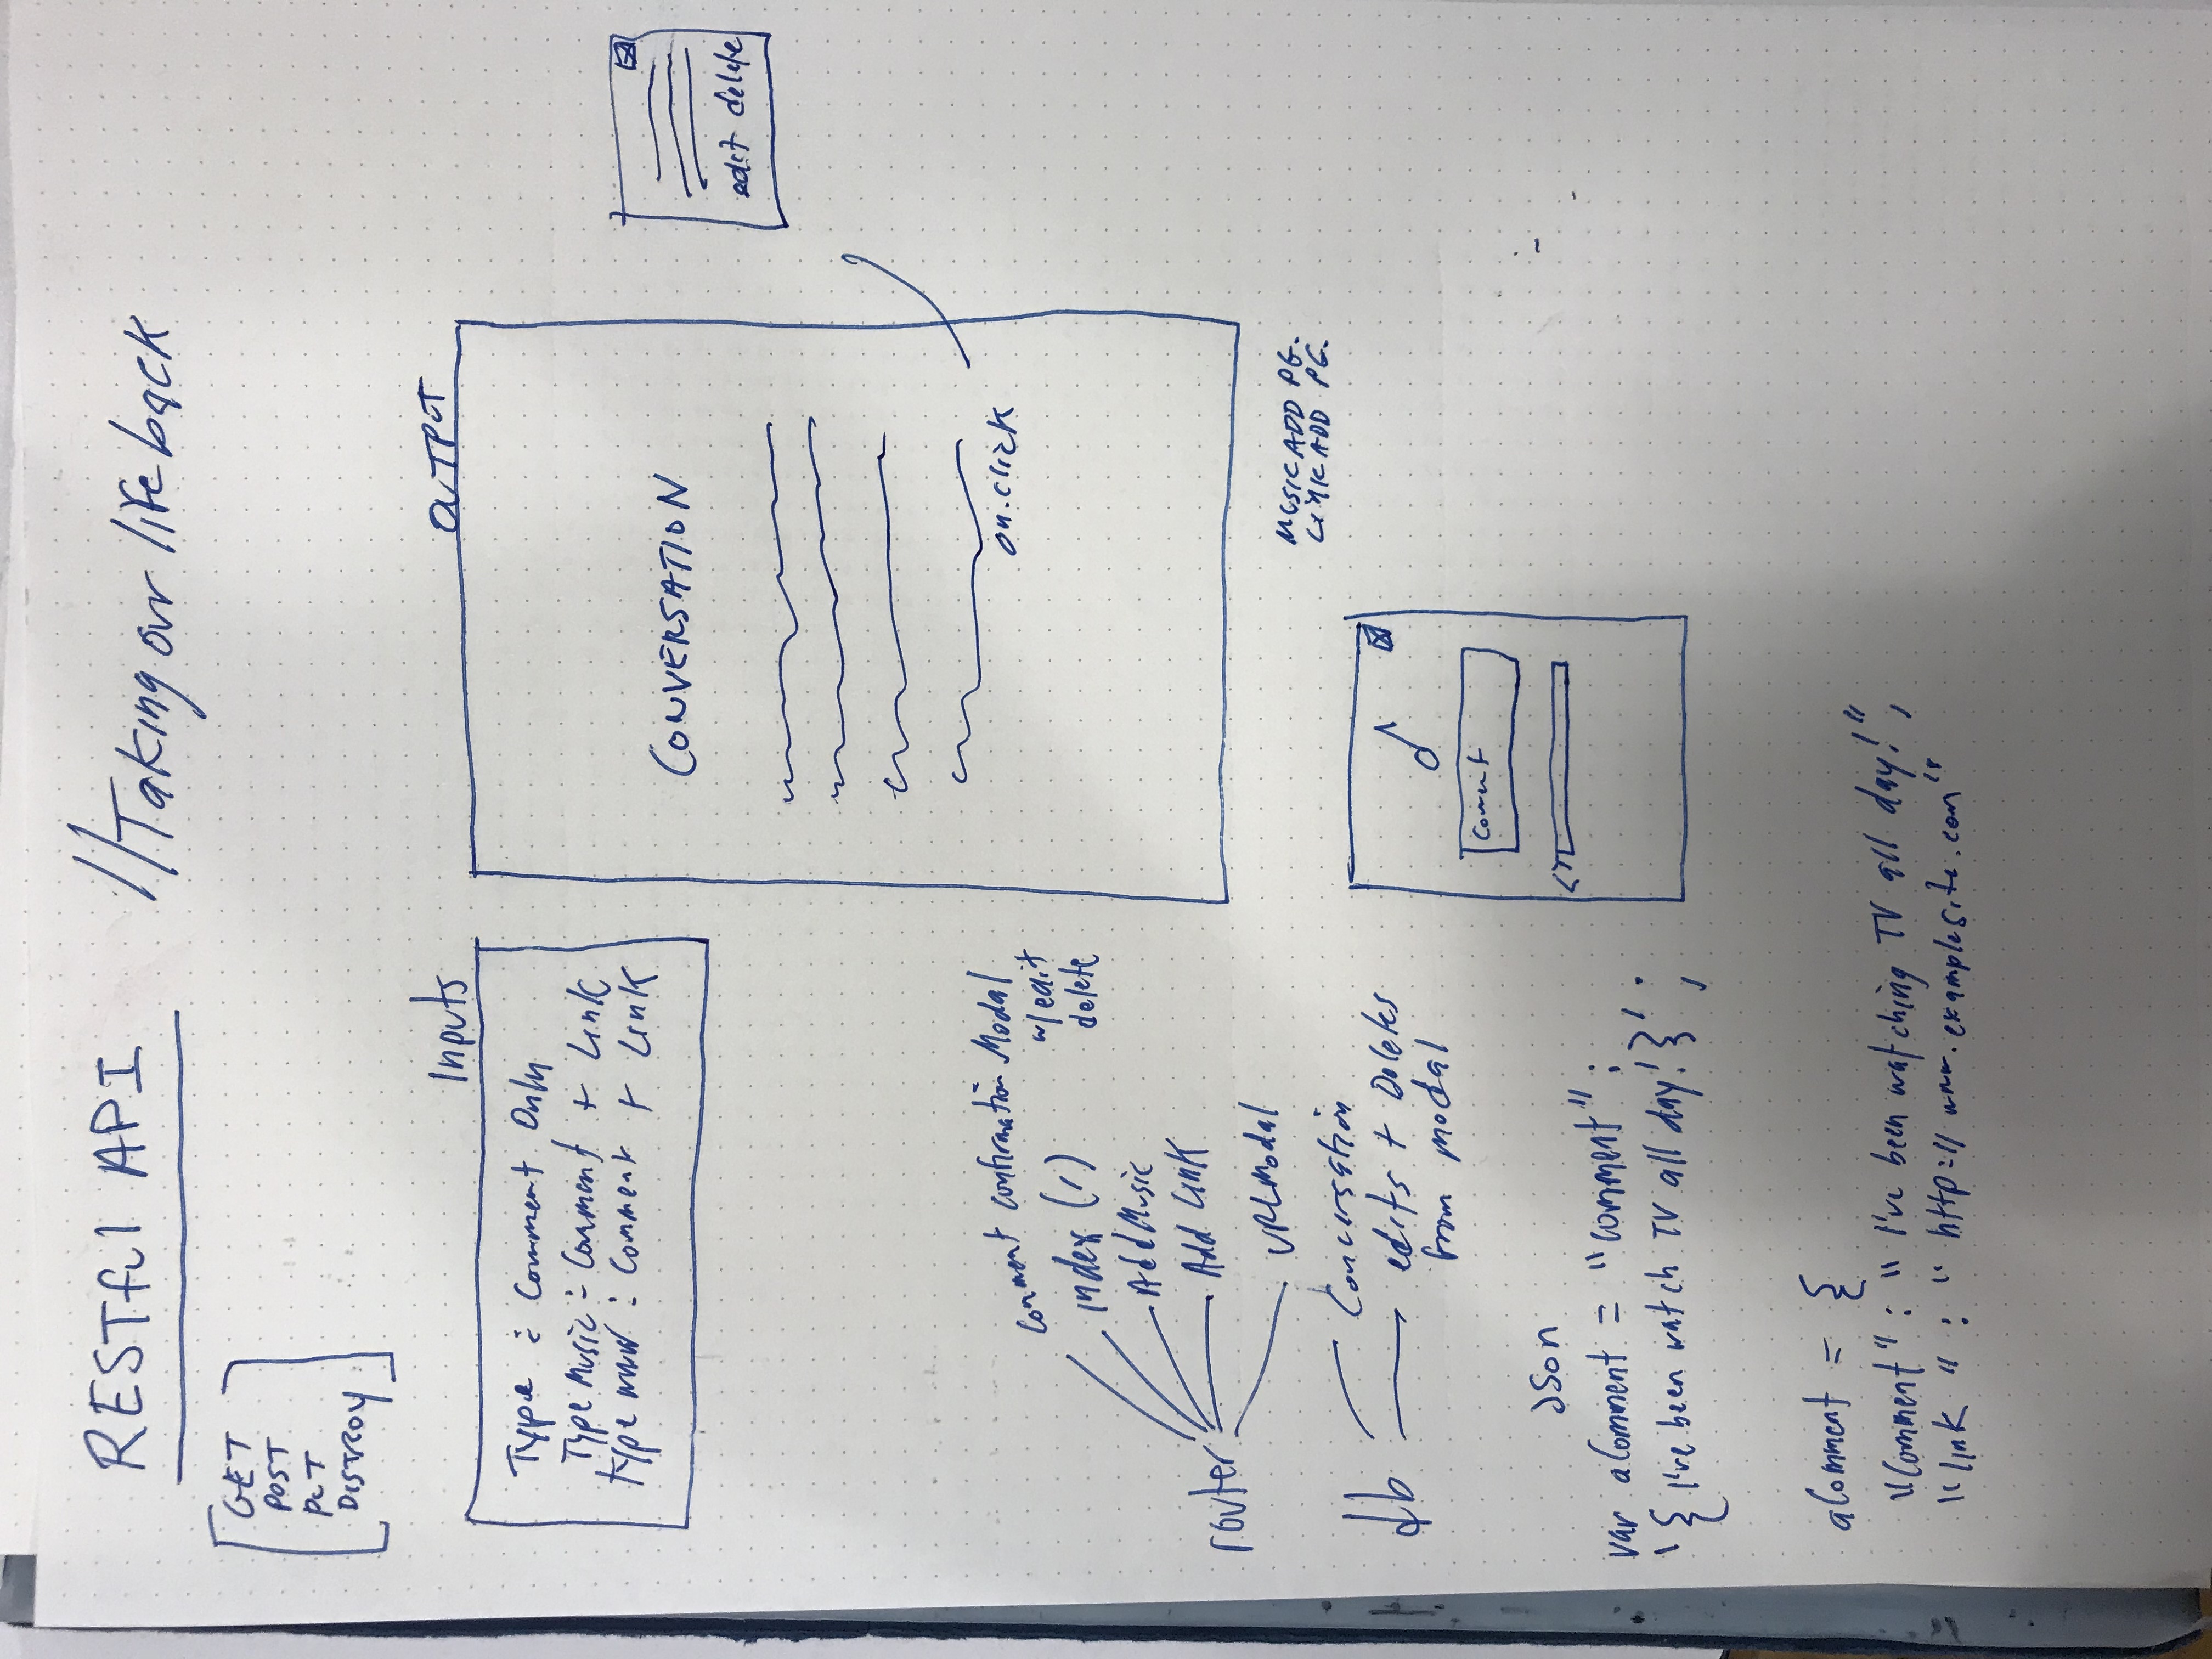 RESTful API
//Taking our life back
GET
POST
PUT
DISTROY
Inputs
Type : Comment Only
Type Music : Comment + Link
type www : Comment + Link
OUTPUT
CONVERSATION
on.click
edit delete
comment confirmation Modal
w/edit
delete
index (/)
Add Music
Add Link
URL Modal
router
db
Conversation
edits + Deletes
from modal
MUSIC ADD PG.
LINK ADD PG.
Comment
<>
JSon
var aComment = "comment" :
'{ I've been watch TV all day! }' ;
aComment = {
"Comment" : " I've been watching TV all day!",
"link " : " http:// www.examplesite.com"